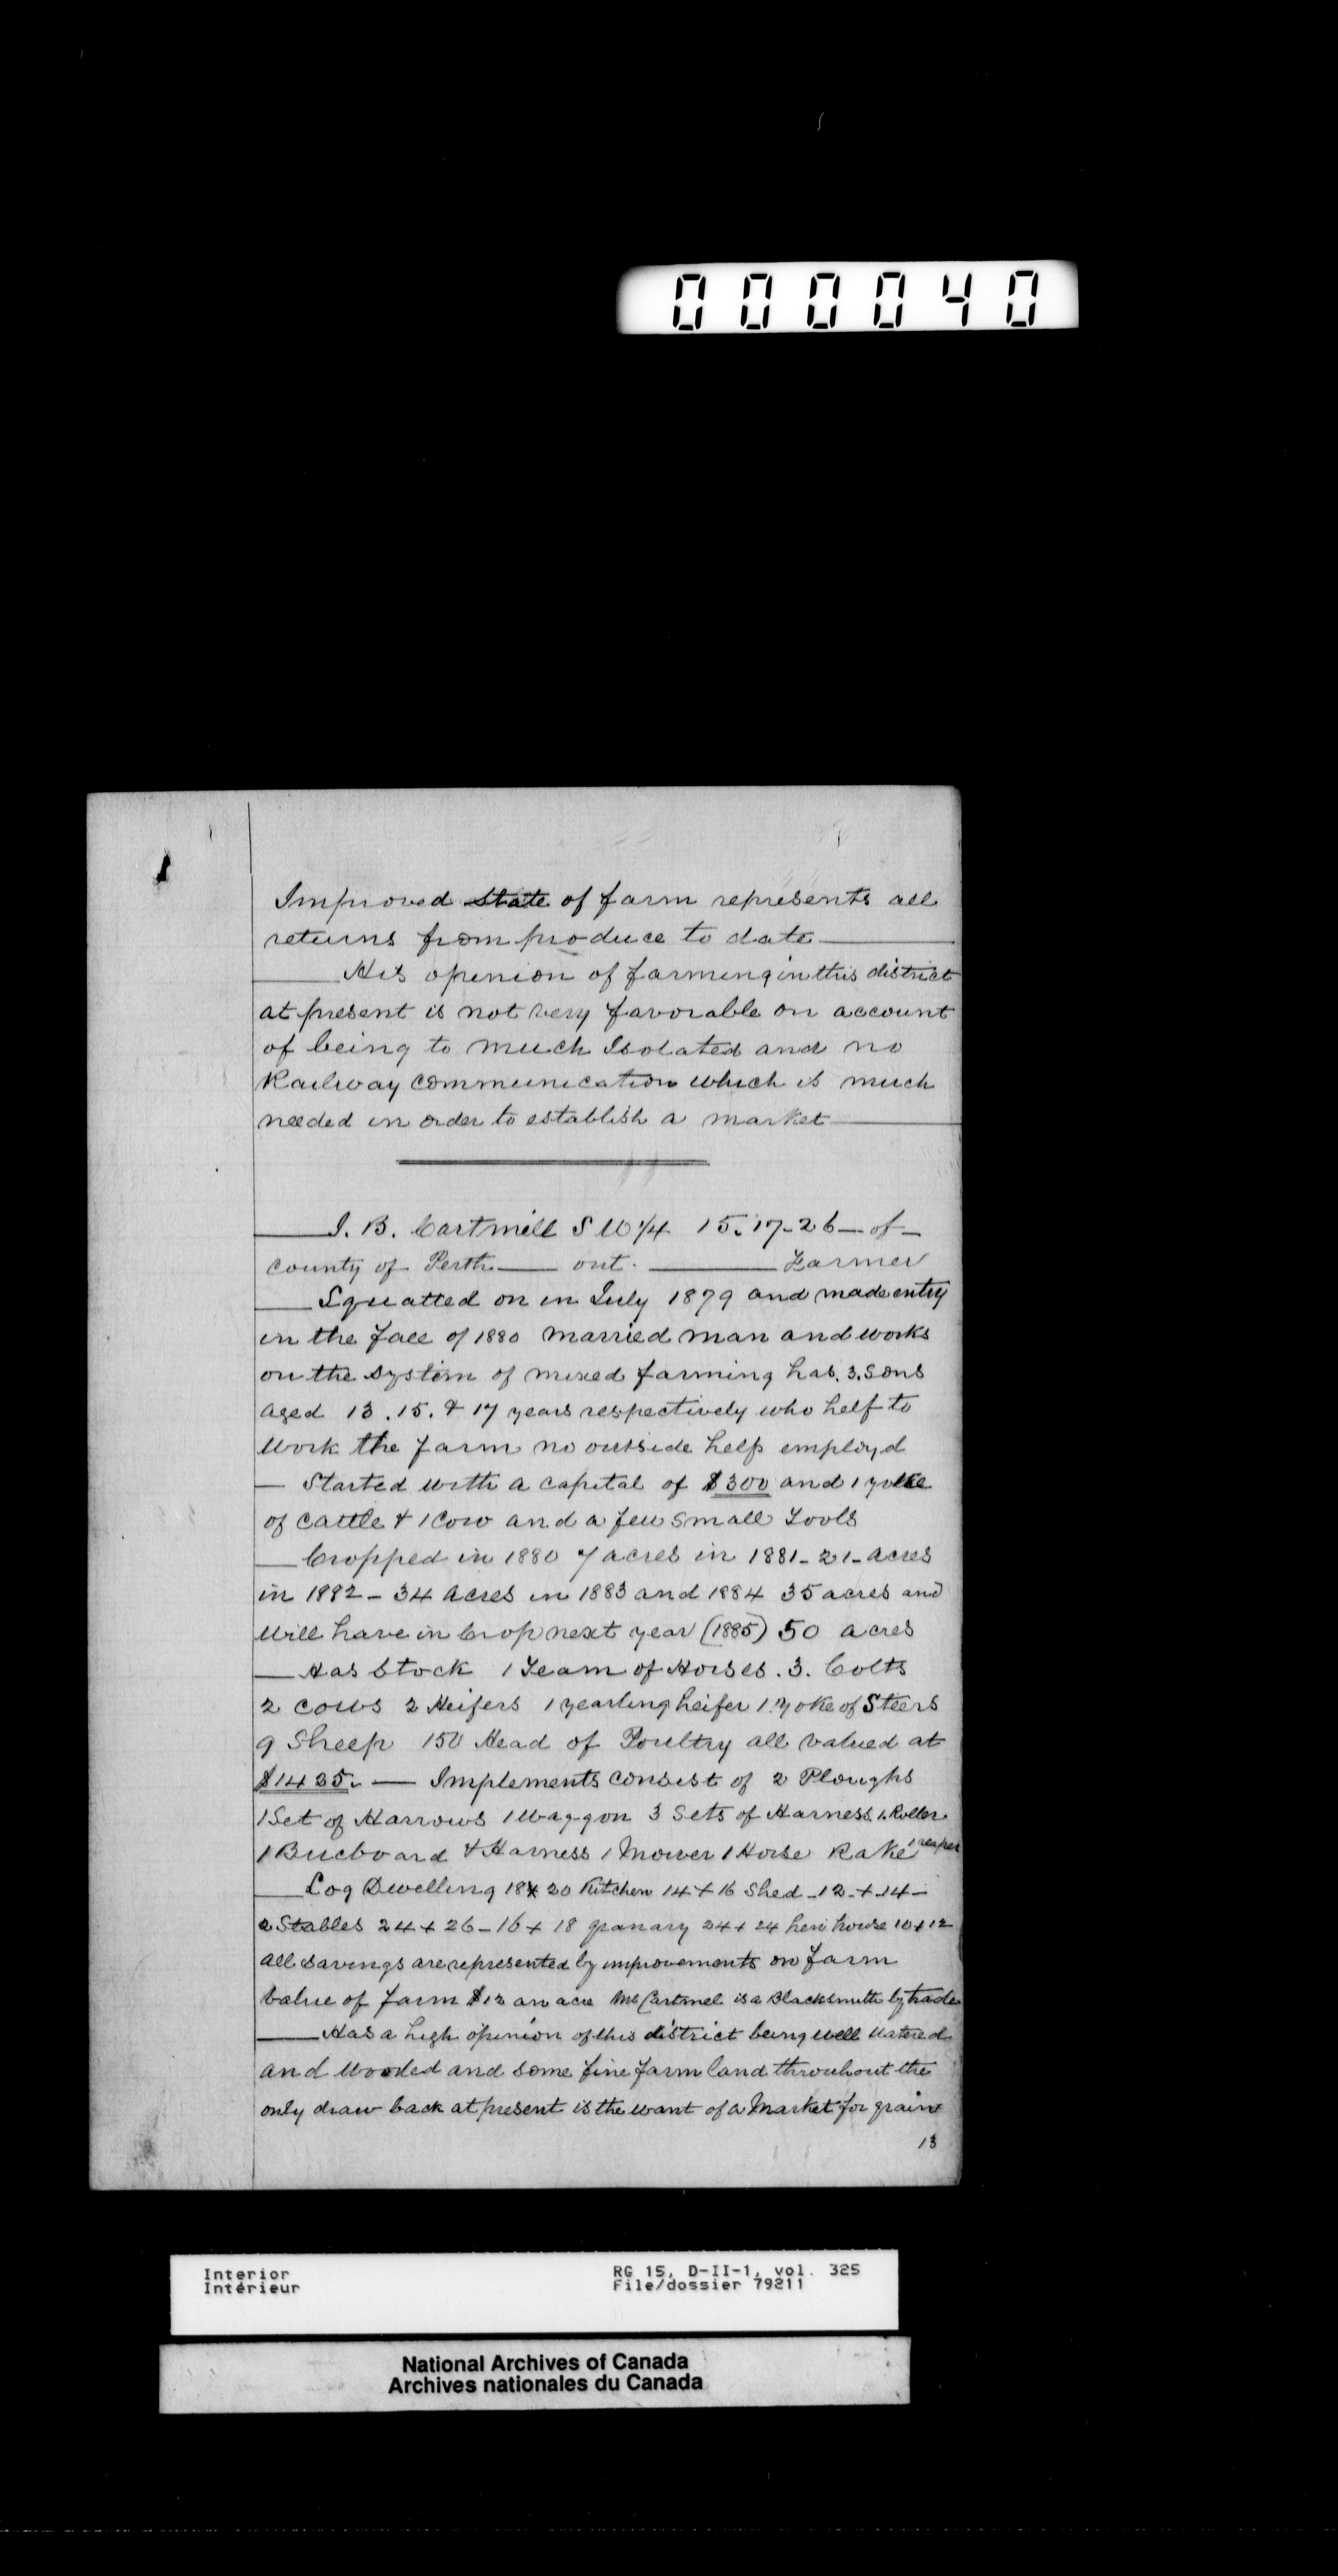 000040
Improved State of farm represents all
returns from produce to date
His openion of farming in this district
at present is not very favorable on account
of being to much Isolated and no
Railway communication which is much
needed in order to establish a market
J. B. Cartmill S W 1/4 15. 17-26 - of -
county of Perth ont. Farmer
Squatted on in July 1879 and made entry
in the fall of 1880 married man and works
on the system of mixed farming has. 3. sons
aged 13. 15. & 17 years respectively who help to
work the farm no outside help employd
Started with a capital of $300 and 1 yoke
of cattle & 1 Cow and a few small Tools
Cropped in 1880 7 acres in 1881 - 21 - acres
in 1882 - 34 acres in 1883 and 1884 35 acres and
will have in Crop next year (1885) 50 acres
Has Stock 1 Team of Horses. 3. Colts
2 cows 2 Heifers 1 yearling heifer 1. yoke of Steers
9 Sheep 150 Head of Poultry all valued at
$1435. Implements consist of 2 Ploughs
1 Set of Harrows 1 Waggon 3 Sets of Harness 1. Roller
1 Bucboard & Harness 1 Mower 1 Horse Rake 1 reaper
Log Dwelling 18 x 20 Kitchen 14 + 16 Shed - 12 - + - 14 -
2 Stables 24 + 26 - 16 + 18 granary 24 + 24 hen house 10 + 12
all savings are represented by improvements on farm
Value of farm $12 an acre Mr Cartmel is a Blacksmith by trade
Has a high opinion of this district being well watered
and wooded and some fine farm land throuhout the
only draw back at present is the want of a Market for grain
13
Interior
Intérieur
RG 15, D-II-1, vol. 325
File/dossier 79211
National Archives of Canada
Archives nationales du Canada